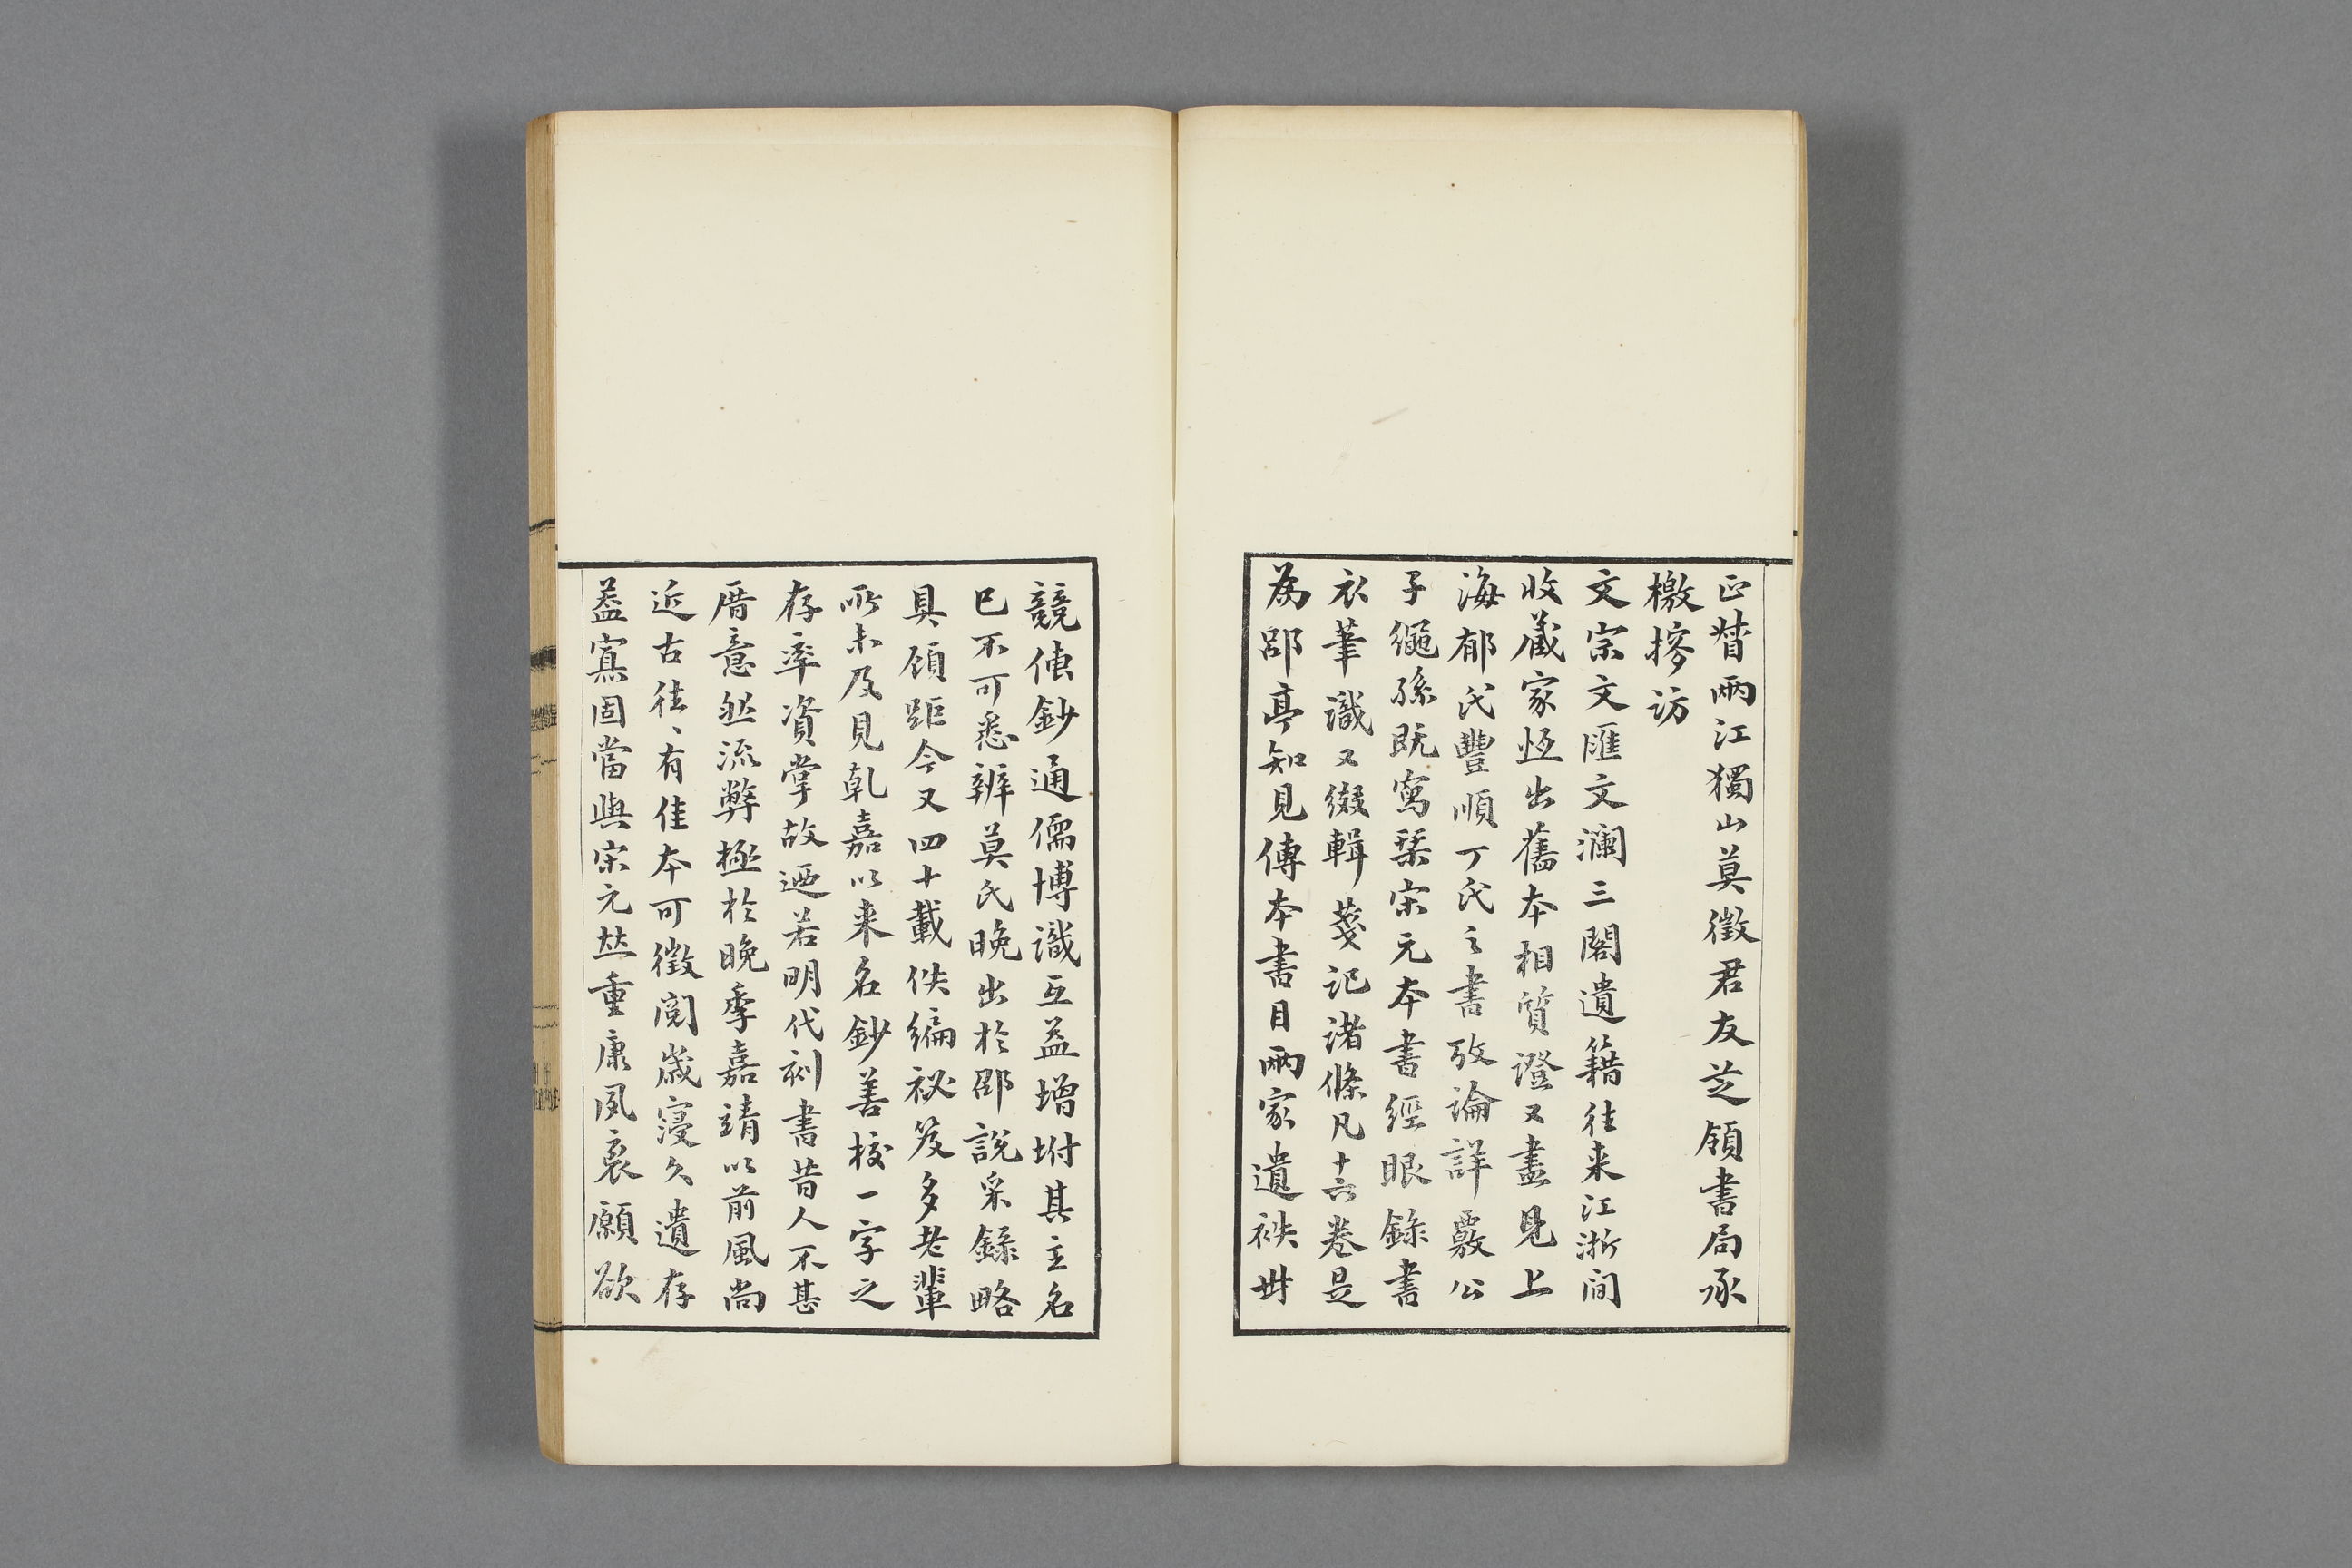 正督兩江獨山莫徵君友芝領書局承
檄搜訪
文宗文匯文瀾三閣遺籍往来江浙間
收藏家恆出舊本相質證又盡見上
海郁氏豐順丁氏之書攷論詳覈公
子繩孫既寫栞宋元本書經眼錄書
衣筆識又綴輯箋記諸條凡十六卷是
為郘亭知見傳本書目兩家遺袠丗
競傳鈔通儒博識互益增坿其主名
已不可悉辨莫氏晚出於邵說采錄略
具顧距今又四十載佚編祕笈多老輩
所未及見乾嘉以来名鈔善校一字之
存率資掌故迺若明代刻書昔人不甚
厝意然流弊極於晚季嘉靖以前風尚
近古往〻有佳本可徵閱歲寖久遺存
葢寡固當與宋元並重康夙褱願欲